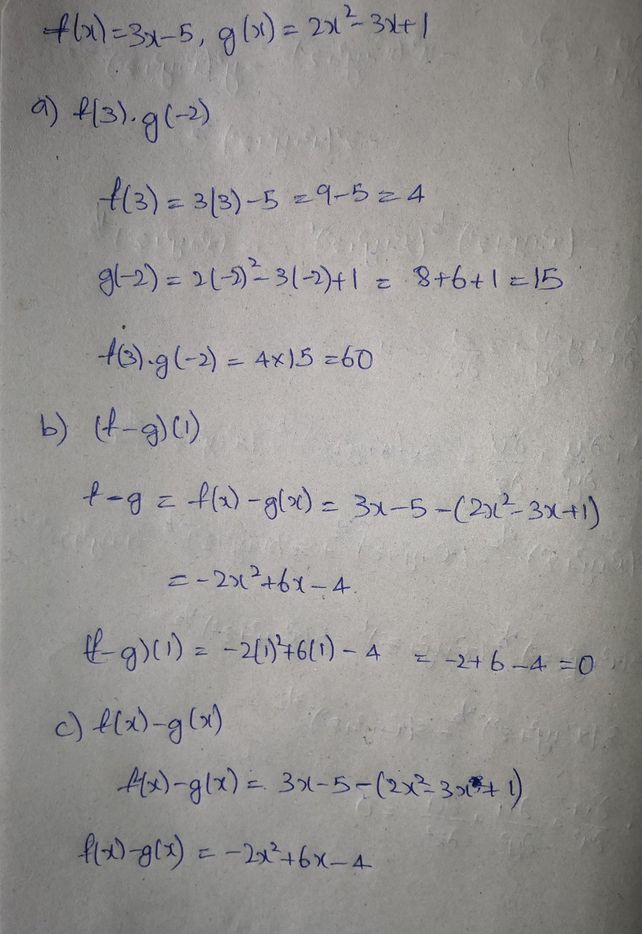 f(x)=3x-5, g(x) = 2x²-3x+1
a) f(3).g(-2)
f(3) = 3(3)-5 = 9-5 = 4
g(-2) = 2(-2)²-3(-2)+1 = 8+6+1 = 15
f(3).g(-2) = 4×15 = 60
b) (f-g)(1)
f-g = f(x)-g(x) = 3x-5-(2x²-3x+1)
= -2x²+6x-4.
(f-g)(1) = -2(1)²+6(1)-4 = -2+6-4 = 0
c) f(x)-g(x)
f(x)-g(x) = 3x-5-(2x²-3x+1)
f(x)-g(x) = -2x²+6x-4